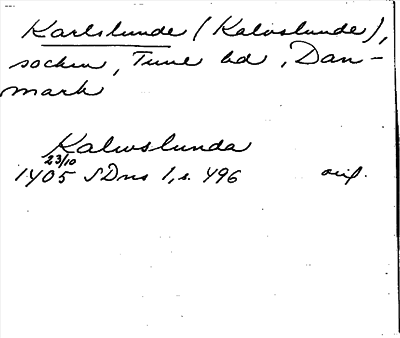 Karlslunde (Kalvslunde),
socken, Tune hd, Dan-
mark
Kalwslunda
23/10
1405 SDns 1, s. 496 orig.